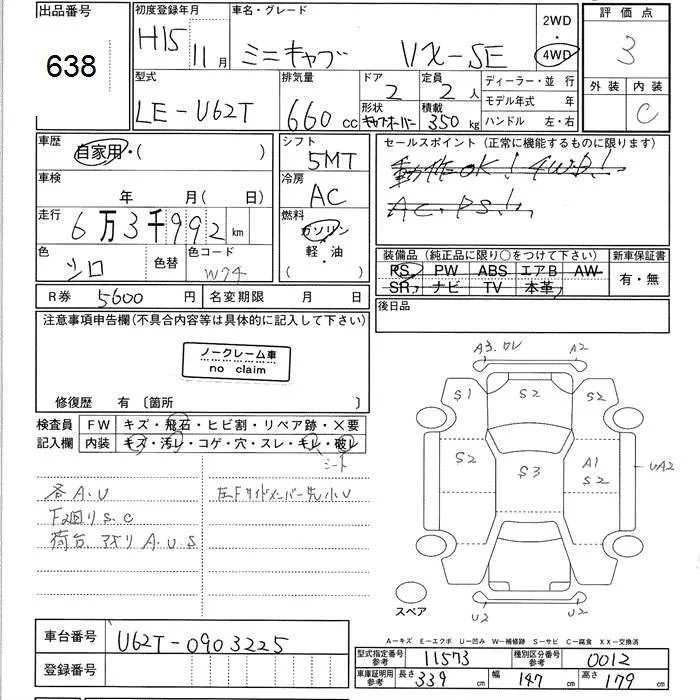 出品番号
638
初度登録年月
H15
11月
車名・グレード
ミニキャブ VX-SE
2WD
・
4WD
評価点
3
外装 内装
C
型式
LE-U62T
排気量
660 cc
ドア
2
定員
2 人
形状
積載
350 kg
ディーラー・並 行
モデル年式 年
ハンドル 左・右
車歴
自家用・( )
車検
年 月( 日)
走行
6万3千992 km
色
シロ
色替
色コード
W74
シフト
5MT
冷房
AC
燃料
ガソリン
・
軽・油
( )
セールスポイント(正常に機能するものに限ります)
動作OK! 4WD!
AC. PS!
装備品(純正品に限り○をつけて下さい)
PS PW ABS エアB AW
SR ナビ TV 本革
新車保証書
有・無
R券 5600 円
名変期限 月 日
後日品
注意事項申告欄(不具合内容等は具体的に記入して下さい)
ノークレーム車
no claim
修復歴 有 〔箇所 〕
検査員
記入欄
FW キズ・飛石・ヒビ割・リペア跡・×要
内装 キズ・汚レ・コゲ・穴・スレ・キレ・破レ
シート
各A.U
F廻りS.C
荷台アオリA.U.S
左Fサイドメンバー先小U
A2
S1
S2
S2
S2
S3
A1
S2
UA2
U2
U2
スペア
A-キズ E-エクボ U-凹み W-補修跡 S-サビ C-腐食 XX-交換済
車台番号
U62T-0903225
登録番号
型式指定番号
参考
11573
種別区分番号
参考
0012
車庫証明用
参考
長さ 339 cm
幅 147 cm
高さ 179 cm